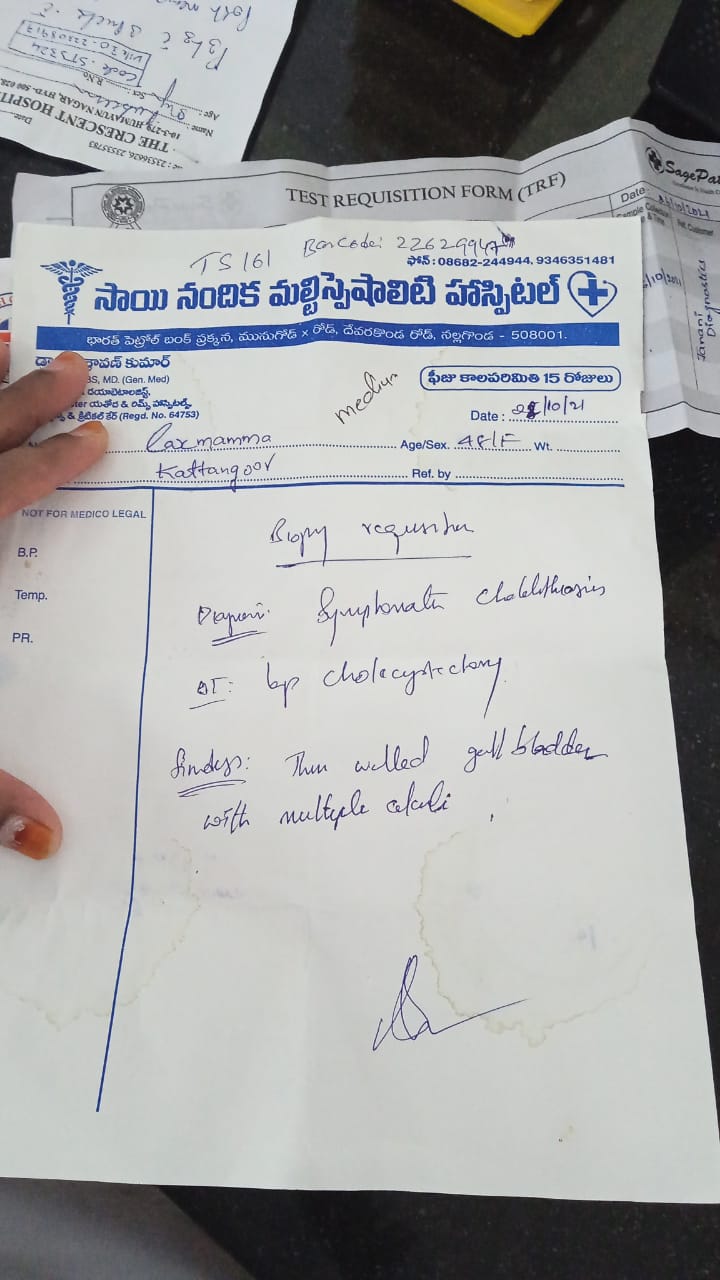 Code. ST324
THE CRESCENT HOSPITAL
10-3-279, HUMAYUN NAGAR, HYD- 500 028
Name
Age :
Sex
R.No.
Date
TEST REQUISITION FORM (TRF)
SagePa
Date:
Tarani
Diagnostics
TS 161 Barcode: 22629947
ఫోన్ : 08682-244944, 9346351481
సాయి నందిక మల్టిస్పెషాలిటి హాస్పిటల్
భారత్ పెట్రోల్ బంక్ ప్రక్కన, మునుగోడ్ x రోడ్, దేవరకొండ రోడ్, నల్లగొండ - 508001.
రావణ్ కుమార్
BS, MD. (Gen. Med)
డయాబెటాలజిస్ట్,
& క్రిటికల్ కేర్ (Regd. No. 64753)
medium
ఫీజు కాలపరిమితి 15 రోజులు
Date : /10/21
Laxmamma Age/Sex. 48/F Wt.
Kattangoor Ref. by
NOT FOR MEDICO LEGAL
B.P.
Temp.
PR.
Biopsy requisition
Diagnosis: Symptomatic Cholelithiasis
OT: lap cholecystectomy
findings: Thin walled gall bladder
with multiple calculi.